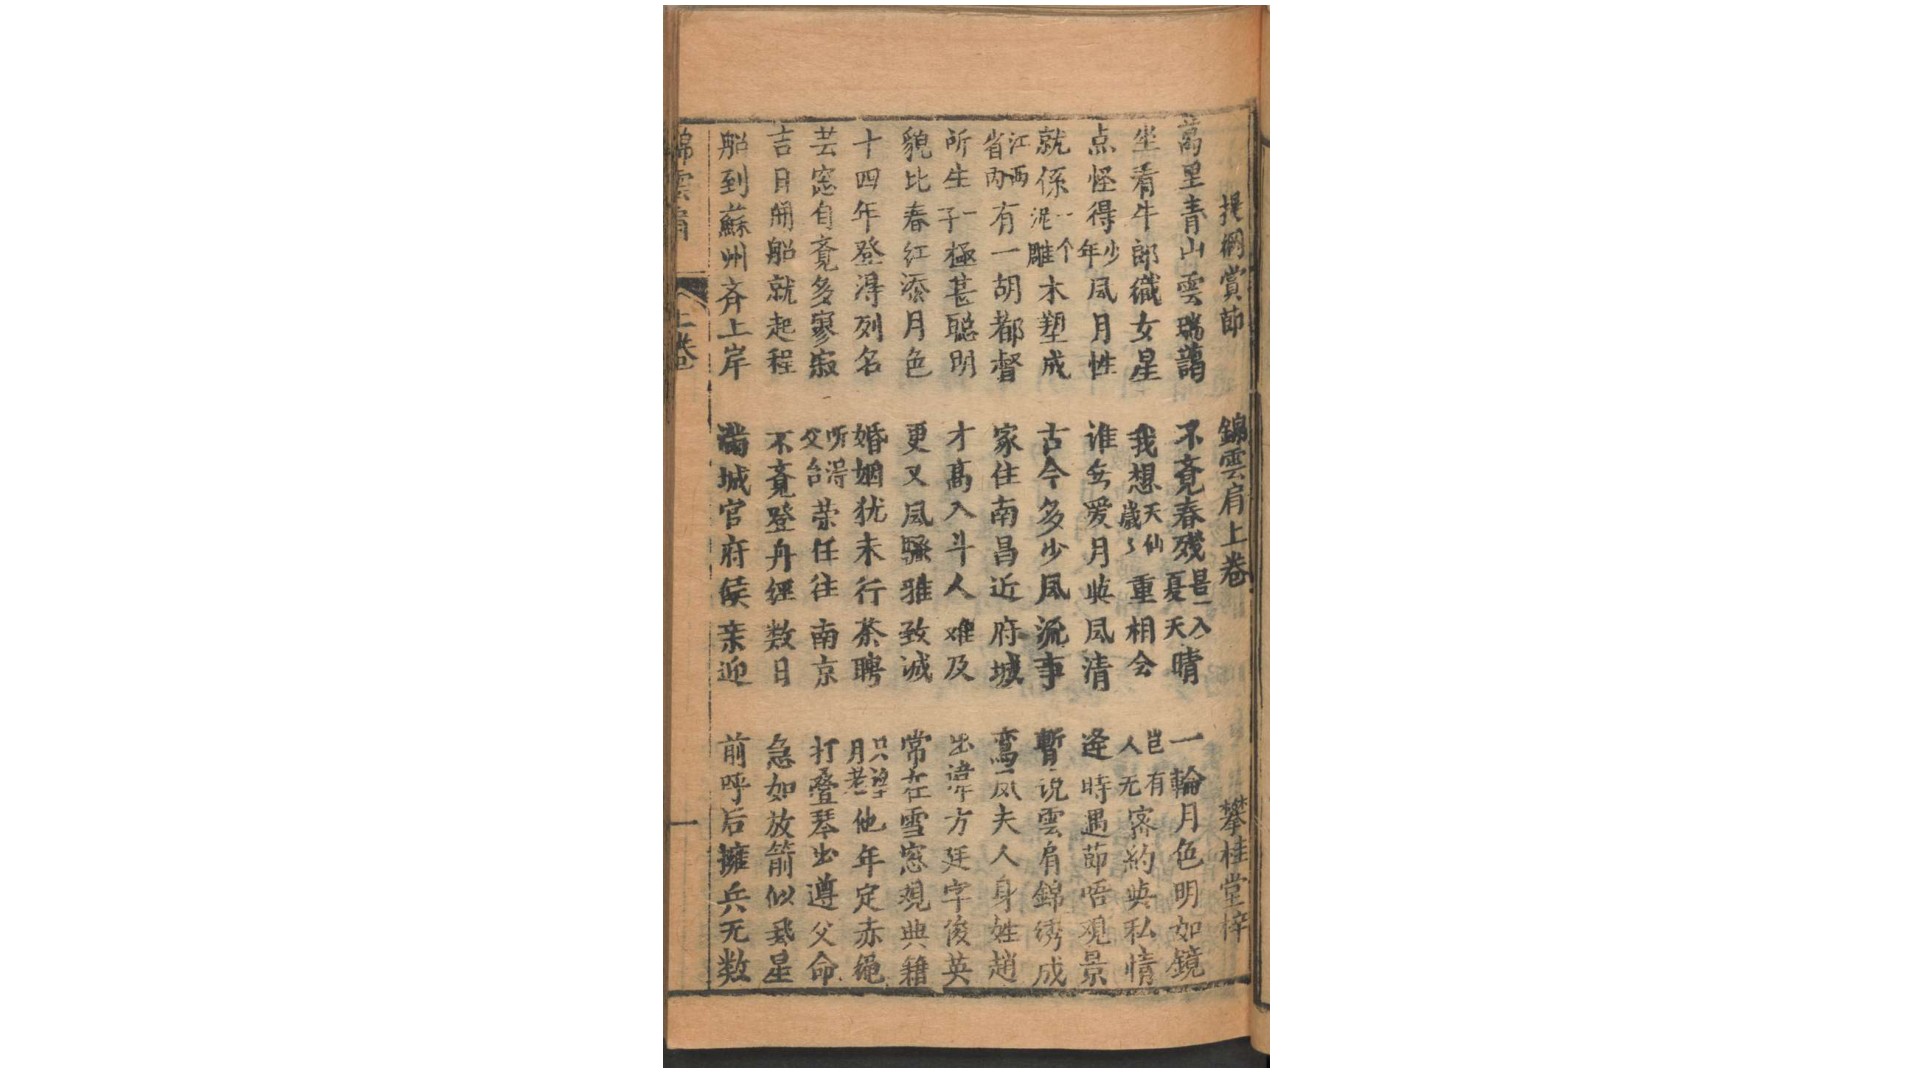 提綱賞節　錦雲肩上卷　攀桂堂梓
萬里青山雲瑞藹　不竟春殘是入夏天晴　一輪月色明如鏡
坐看牛郎織女星　我想天仙歲〻重相会　岂有人无密約與私情
点怪得少年风月性　谁無爱月與风清　逢時遇節唔观景
就係一个泥雕木塑成　古今多少风流事　暫说雲肩錦绣成
江西省內有一胡都督　家住南昌近府城　鸾凤夫人身姓趙
所生一子極甚聪明　才高入斗人难及　方廷字俊英
貌比春红添月色　更又风騷雅致诚　常在雪窓观典籍
十四年登得列名　婚姻犹未行茶聘　只望月老他年定赤绳
芸窓自竟多寥寂　所得父台荣任往南京　打叠琴出遵父命
吉日開船就起程　不竟登舟經数日　急如放箭似飛星
船到蘇州斉上岸　满城官府侯亲迎　前呼后擁兵无数
錦雲肩　上卷　一